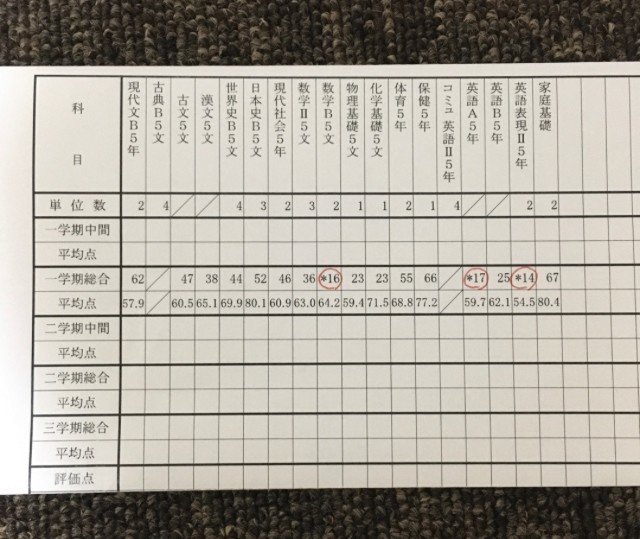 科目 現代文B5年 古典B5文 古文5文 漢文5文 世界史B5文 日本史B5文 現代社会5年 数学Ⅱ5文 数学B5文 物理基礎5文 化学基礎5文 体育5年 保健5年 コミュ英語Ⅱ5年 英語A5年 英語B5年 英語表現Ⅱ5年 家庭基礎
単位数 2 4 4 3 2 3 2 1 1 2 1 4 2 2
一学期中間
平均点
一学期総合 62 47 38 44 52 46 36 *16 23 23 55 66 *17 25 *14 67
平均点 57.9 60.5 65.1 69.9 80.1 60.9 63.0 64.2 59.4 71.5 68.8 77.2 59.7 62.1 54.5 80.4
二学期中間
平均点
二学期総合
平均点
三学期総合
平均点
評価点